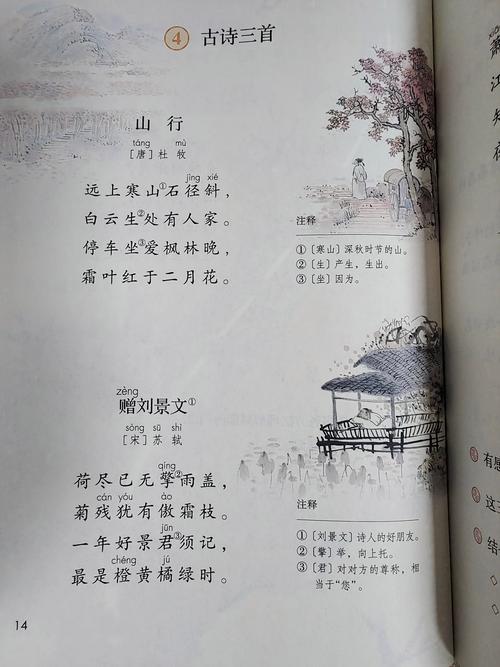 4 古诗三首
山行
táng mù
[唐] 杜牧
jìng xié
远上寒山①石径斜，
白云生②处有人家。
停车坐③爱枫林晚，
霜叶红于二月花。
注释
①〔寒山〕深秋时节的山。
②〔生〕产生，生出。
③〔坐〕因为。
zèng
赠刘景文①
sòng sū shì
[宋] 苏轼
qíng
荷尽已无擎②雨盖，
cán yóu ào
菊残犹有傲霜枝。
jūn
一年好景君③须记，
chéng jú
最是橙黄橘绿时。
注释
①〔刘景文〕诗人的好朋友。
②〔擎〕举，向上托。
③〔君〕对对方的尊称，相
当于“您”。
14
有感
这
结